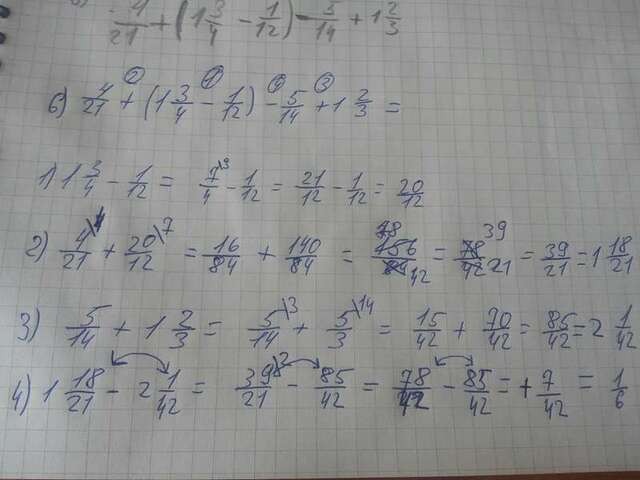 4/21 + (1 3/4 - 1/12) - 5/14 + 1 2/3
② ① ④ ③
б) 4/21 + (1 3/4 - 1/12) - 5/14 + 1 2/3 =
1) 1 3/4 - 1/12 = 7/4\3 - 1/12 = 21/12 - 1/12 = 20/12
2) 4/21\4 + 20/12\7 = 16/84 + 140/84 = 156/84 78/42 = 78/42 39/21 = 39/21 = 1 18/21
3) 5/14 + 1 2/3 = 5/14\3 + 5/3\14 = 15/42 + 70/42 = 85/42 = 2 1/42
4) 1 18/21 - 2 1/42 = 39/21\2 - 85/42 = 78/42 - 85/42 = + 7/42 = 1/6